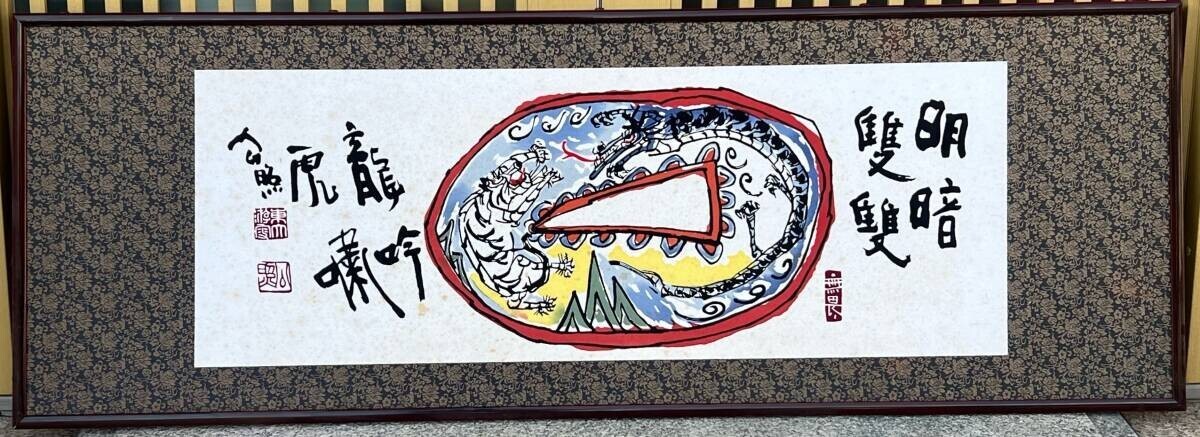 明暗
雙雙
龍吟
虎嘯
公照